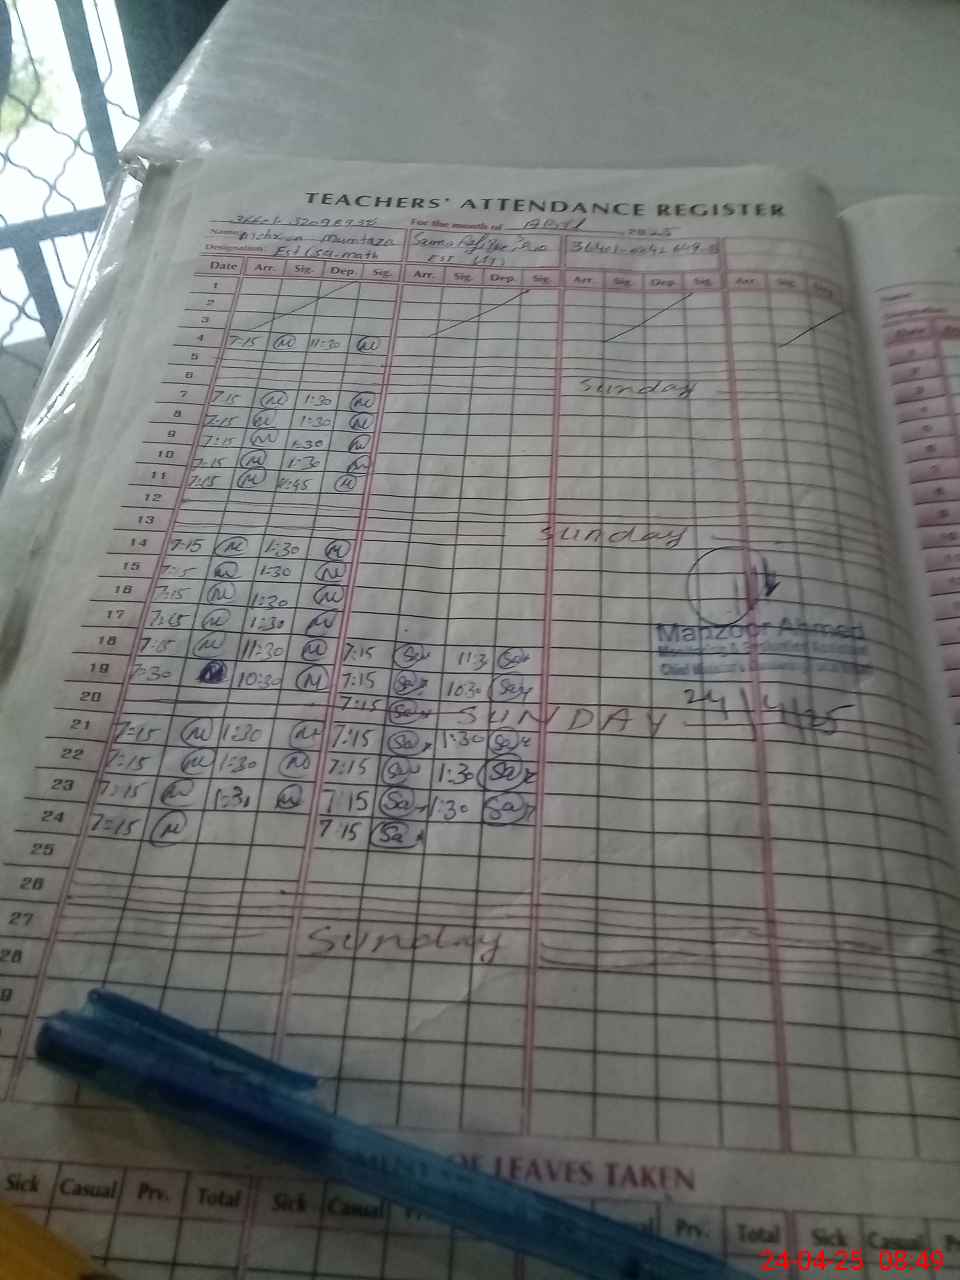 TEACHERS' ATTENDANCE REGISTER
For the month of April 2025
Name Mumtaza
Designation Est (Sci-math
Date Arr. Sig. Dep. Sig. Arr. Sig. Dep. Sig. Arr. Sig. Dep. Sig. Arr. Sig.
1
2
3
4 7:15 M 11:30 M
5
6 Sunday
7 7:15 M 1:30 M
8 7:15 M 1:30 M
9 7:15 M 1:30 M
10 7:15 M 1:30 M
11 7:15 M M
12
13 Sunday
14 7:15 M 1:30 M
15 7:15 M 1:30 M
16 7:15 M 1:30 M
17 7:15 M 1:30 M
Manzoor Ahmed
Monitoring & Evaluation Assistant
18 7:15 M 11:30 M 7:15 Sa 11:3 Sa
19 7:30 M 10:30 M 7:15 Sa 10:30 Sa
20 7:15 Sa SUNDAY 24/4/25
21 7:15 M 1:30 M 7:15 Sa 1:30 Sa
22 7:15 M 1:30 M 7:15 Sa 1:30 Sa
23 7:15 M 1:30 M 7:15 Sa 1:30 Sa
24 7:15 M 7:15 Sa
25
26
27 Sunday
28
OF LEAVES TAKEN
Sick Casual Prv. Total Sick Casual Prv. Total Sick Casual
24-04-25 08:49